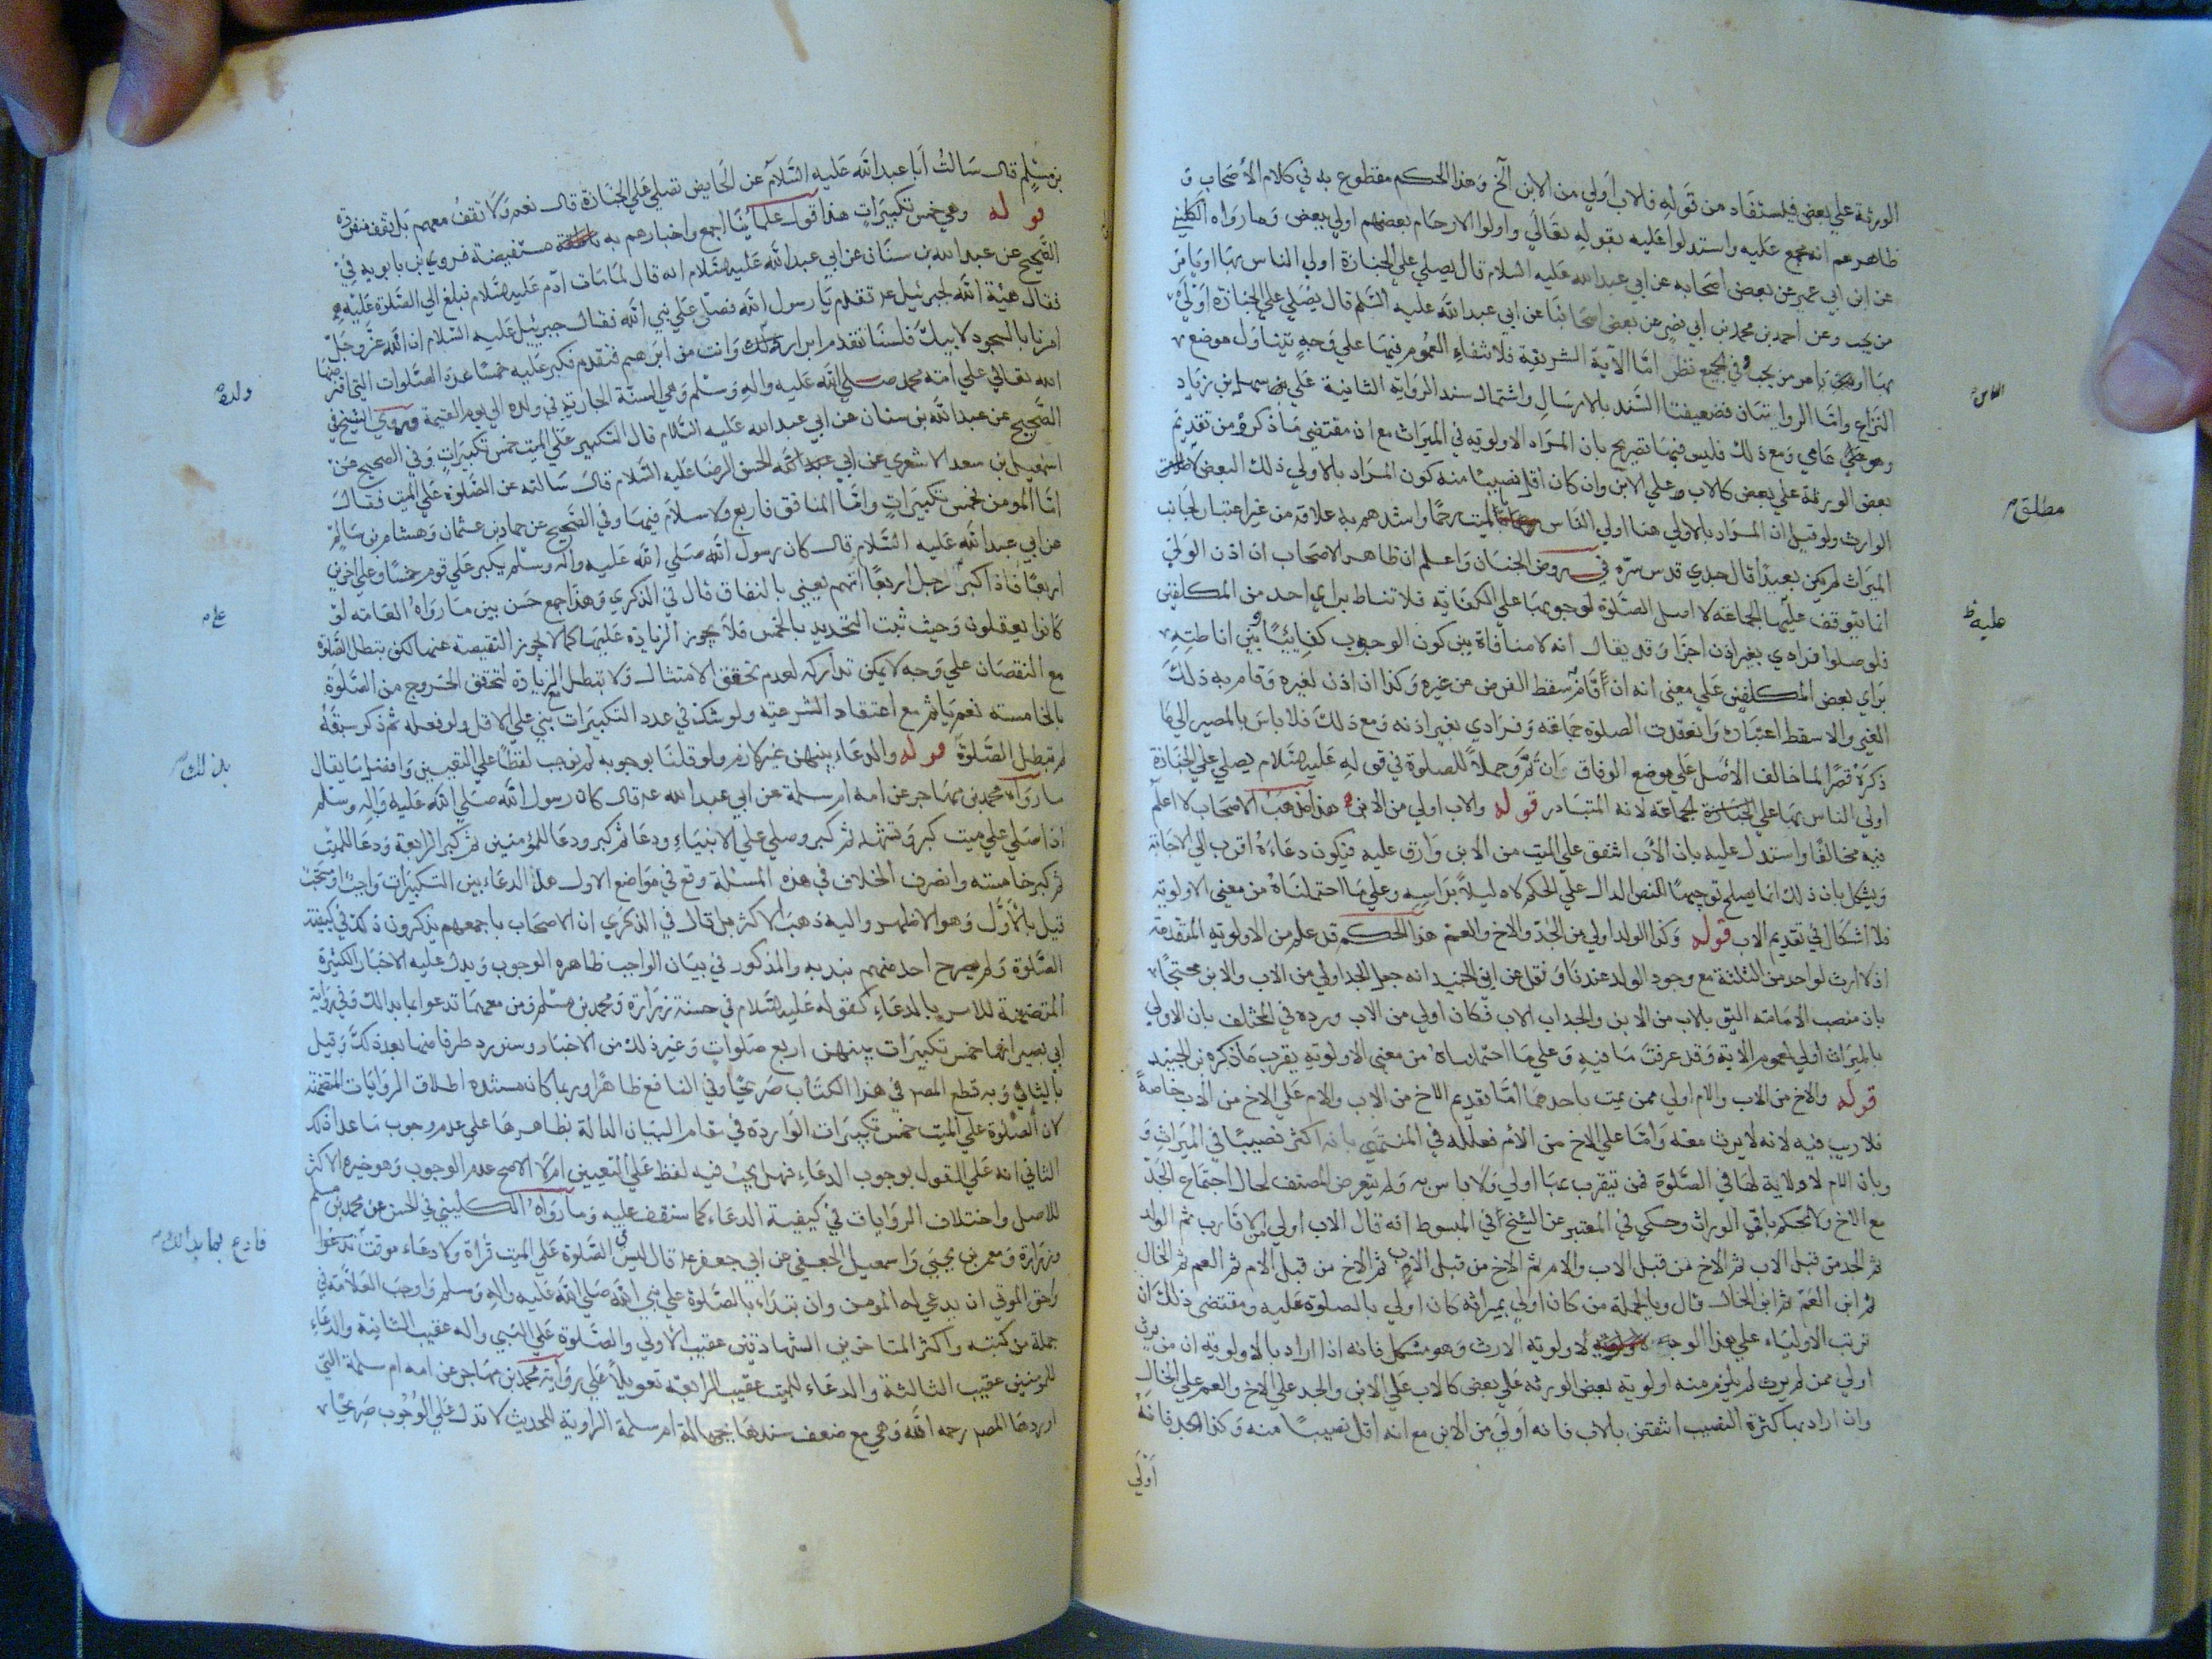 الورثة علي بعض فيستفاد من قوله فالاب اولي من الابن الخ وهذا الحكم مقطوع به في كلام الاصحاب و
ظاهرهم انه مجمع عليه واستدلوا عليه بقوله تعالي واولوا الارحام بعضهم اولي ببعض وما رواه الكليني
عن ابن ابي عمير عن بعض اصحابه عن ابي عبد الله عليه السلام قال يصلي علي الجنازة اولي الناس بها او يامر
من يحب وعن احمد بن محمد بن ابي نصر عن بعض اصحابنا عن ابي عبد الله عليه السلم قال يصلي علي الجنازة اولي
بها او يامر من يحب وفي الجميع نظر اما الآية الشريفة فلانتفاء العموم فيها علي وجه يتناول موضع
النزاع واما الروايتان فضعيفتا السند بالارسال واشتمال سند الرواية الثانية علي سهل بن زياد
وهو عامي ومع ذلك فليس فيهما تصريح بان المراد الاولوية في الميراث مع ان مقتضي ما ذكروه من تقديم
بعض الورثة علي بعض كالاب علي الابن وان كان اقل نصيبا منه كون المراد بالاولي ذلك البعض لا
الوارث ولو قيل ان المراد بالاولي هنا اولي الناس بالميت رحما واشدهم به علاقة من غير اعتبار لجانب
الميراث لم يكن بعيدا قال جدي قدس سره في روض الجنان واعلم ان ظاهر الاصحاب ان اذن الولي
انما يتوقف عليها الجماعة لا اصل الصلوة لوجوبها علي الكفاية فلا تناط براي احد من المكلفين
فلو صلوا فرادي بغير اذن اجزا وقد يقال انه لا منافاة بين كون الوجوب كفائيا وبين اناطته
براي بعض المكلفين علي معني انه ان قام سقط الفرض عن غيره وكذا ان اذن لغيره وقام به ذلك
الغير والا سقط اعتباره وانعقدت الصلوة جماعة وفرادي بغير اذنه ومع ذلك فلا باس بالمصير الي ما
ذكره قصرا لما خالف الاصل علي موضع الوفاق ان تم وحملا للصلوة في قوله عليه السلام يصلي علي الجنازة
اولي الناس بها علي الجماعة لانه المتبادر قوله والاب اولي من الابن هذا مذهب الاصحاب لا اعلم
فيه مخالفا واستدل عليه بان الاب اشفق علي الميت من الابن وارق عليه فيكون دعاءه اقرب الي الاجابة
ويشكل بان ذلك انما يصلح توجيها للنص الدال علي الحكم لا دليلا براسه وعلي ما احتملناه من معني الاولوية
فلا اشكال في تقديم الاب قوله وكذا الولد اولي من الجد والاخ والعم هذا الحكم قد علم من الاولوية المتقدمة
اذ لا ارث لواحد من الثلثة مع وجود الولد عندنا ونقل عن ابن الجنيد انه جعل الجد اولي من الاب والابن محتجا
بان منصب الامامة اليق بالاب من الابن والجد اب الاب فكان اولي من الاب ورده في المختلف بان الاولي
بالميراث اولي لعموم الاية وقد عرفت ما فيه وعلي ما احتملناه من معني الاولوية يقرب ما ذكره بن الجنيد
قوله والاخ من الاب والام اولي ممن يمت باحدهما اما تقديم الاخ من الاب والام علي الاخ من الاب خاصة
فلا ريب فيه لانه لا يرث معه واما علي الاخ من الام فعلله في المنتهي بانه اكثر نصيبا في الميراث و
وبان الام لا ولاية لها في الصلوة فمن يتقرب بها اولي ولا باس به ولم يتعرض المصنف لحال اجتماع الجد
مع الاخ ولا لحكم باقي الوراث وحكي في المعتبر عن الشيخ في المبسوط انه قال الاب اولي الاقارب ثم الولد
ثم الجد من قبل الاب ثم الاخ من قبل الاب والام ثم الاخ من قبل الاب ثم الاخ من قبل الام ثم العم ثم الخال
ثم ابن العم ثم ابن الخال قال وبالجملة من كان اولي بميراثه كان اولي بالصلوة عليه ومقتضي ذلك ان
ترتب الاولياء علي هذا الوجه لاولوية الارث وهو مشكل فانه اذا اراد بالاولوية ان من يرث
اولي ممن لم يرث لم يلزم منه اولوية بعض الورثة علي بعض كالاب علي الابن والجد علي الاخ والعم علي الخال
وان اراد بها كثرة النصيب انتقض بالاب فانه اولي من الابن مع انه اقل نصيبا منه وكذا الجد فانه
اولي
مطلق
عليه
بن مسلم قال سالت ابا عبد الله عليه السلام عن الحايض تصلي علي الجنازة قال نعم ولا تقف معهم بل تقف منفردة
قوله وهي خمس تكبيرات هذا قول علمائنا اجمع واخبارهم به مستفيضة فروي ابن بابويه في
الصحيح عن عبد الله بن سنان عن ابي عبد الله عليه السلام انه قال لما مات ادم عليه السلام فبلغ الي الصلوة عليه
فقال هبة الله لجبرئيل ع تقدم يا رسول الله فصل علي نبي الله فقال جبرئيل عليه السلام ان الله عز وجل
امرنا بالسجود لابيك فلسنا نتقدم ابرار ولده وانت من ابرهم فتقدم فكبر عليه خمسا عدة الصلوات التي افترضها
الله تعالي علي امة محمد صلي الله عليه واله وسلم وهي السنة الجارية في ولده الي يوم القيمة وروي الشيخ في
الصحيح عن عبد الله بن سنان عن ابي عبد الله عليه السلام قال التكبير علي الميت خمس تكبيرات وفي الصحيح عن
اسمعيل بن سعد الاشعري عن ابي الحسن الرضا عليه السلام قال سالته عن الصلوة علي الميت فقال
اما المومن فخمس تكبيرات واما المنافق فاربع ولا سلام فيها وفي الصحيح عن حماد بن عثمان وهشام بن سالم
عن ابي عبد الله عليه السلام قال كان رسول الله صلي الله عليه واله وسلم يكبر علي قوم خمسا وعلي اخرين
اربعا فاذا كبر علي رجل اربعا اتهم يعني بالنفاق قال في الذكري وهذا جمع حسن بين ما رواه العامة لو
كانوا يعقلون وحيث ثبت التحديد بالخمس فلا يجوز الزيادة عليها كما لا يجوز النقيصة عنها لكن تبطل الصلوة
مع النقصان علي وجه لا يمكن تداركه لعدم تحقق الامتثال ولا تبطل الزيادة لتحقق الخروج من الصلوة
بالخامسة نعم ياثم مع اعتقاد الشرعية ولو شك في عدد التكبيرات بني علي الاقل ولو فعله ثم ذكر سبقه
لم تبطل الصلوة قوله والدعاء بينهن غير لازم ولو قلنا بوجوبه لم نوجب لفظا علي التعيين وافضل ما يقال
ما رواه محمد بن مهاجر عن امه ام سلمة عن ابي عبد الله ع قال كان رسول الله صلي الله عليه واله وسلم
اذا صلي علي ميت كبر وتشهد ثم كبر وصلي علي الانبياء ودعا ثم كبر ودعا للمؤمنين ثم كبر الرابعة ودعا للميت
ثم كبر خامسة وانصرف الخلاف في هذه المسئلة وقع في مواضع الاول هل الدعاء بين التكبيرات واجب او مستحب
قيل بالاول وهو الاظهر واليه ذهب الاكثر بل قال في الذكري ان الاصحاب باجمعهم يذكرون ذلك في كيفية
الصلوة ولم يصرح احد منهم بندبه والمذكور في بيان الواجب ظاهره الوجوب ويدل عليه الاخبار الكثيرة
المتضمنة للامر بالدعاء كقوله عليه السلام في حسنة زرارة ومحمد بن مسلم ومن معهما تدعوا بما بدا لك وفي رواية
ابي بصير انها خمس تكبيرات بينهن اربع صلوات وغير ذلك من الاخبار وسنورد طرفا منها بعد ذلك وقيل
بالثاني وبه قطع المصنف في هذا الكتاب صريحا وفي النافع ظاهرا وربما كان مستنده اطلاق الروايات المتضمنة
لان الصلوة علي الميت خمس تكبيرات الواردة في مقام البيان الدالة بظاهرها علي عدم وجوب ما عدا ذلك
الثاني انه علي القول بوجوب الدعاء فهل يجب فيه لفظ علي التعيين ام لا الاصح عدم الوجوب وهو خيرة الاكثر
للاصل واختلاف الروايات في كيفية الدعاء كما ستقف عليه وما رواه الكليني في الحسن عن محمد بن مسلم
وزرارة ومعمر بن يحيي واسمعيل الجعفي عن ابي جعفر ع قال ليس في الصلوة علي الميت قراة ولا دعاء موقت تدعوا
واحق الموتي ان يدعي له المومن وان تبداء بالصلوة علي نبي الله صلي الله عليه واله وسلم واوجب العلامة في
جملة من كتبه واكثر المتاخرين الشهادتين عقيب الاولي والصلوة علي النبي واله عقيب الثانية والدعاء
للمومنين عقيب الثالثة والدعاء للميت عقيب الرابعة تعويلا علي رواية محمد بن مهاجر عن امه ام سلمة التي
اوردها المصنف رحمه الله وهي مع ضعف سندها بجهالة ام سلمة الراوية للحديث لا تدل علي الوجوب صريحا
ولده
علي
بذلك